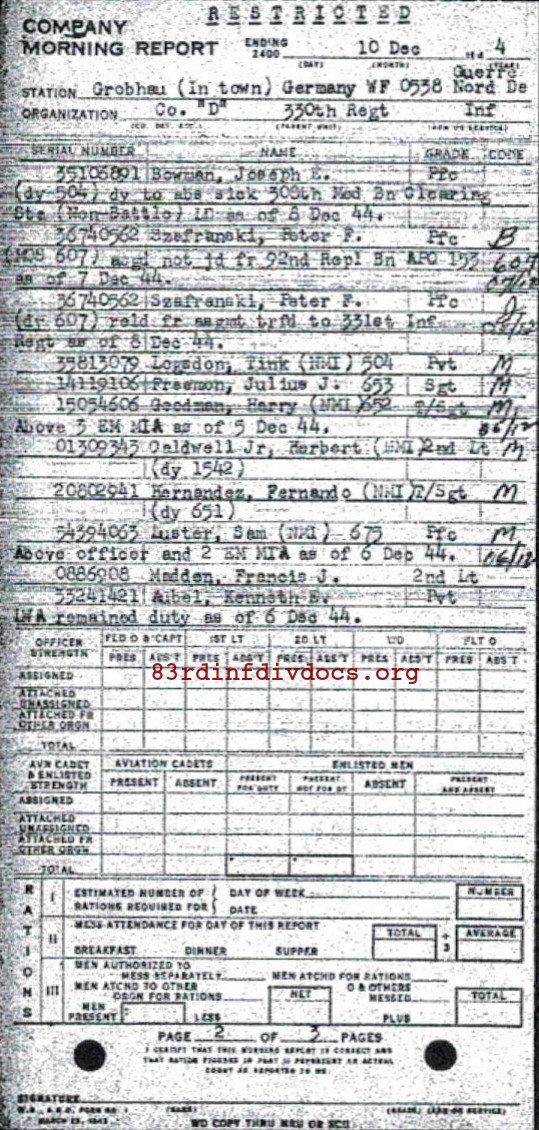 RESTRICTED
COMPANY
MORNING REPORT ENDING 2400 10 Dec 194 4
(DAY) (MONTH) (YEAR)
Guerre
STATION Grobhau (In town) Germany WF 0538 Nord De
ORGANIZATION Co. "D" 330th Regt Inf
SERIAL NUMBER NAME GRADE CODE
35106891 Bowman, Joseph E. Pfc
(dy 504) dy to abs sick 308th Med Bn Clearing
Sta (Non-Battle) LD as of 8 Dec 44.
36740562 Szafranski, Peter F. Pfc B
(MOS 607) asgd not jd fr 92nd Repl Bn APO 153 607
as of 7 Dec 44.
36740562 Szafranski, Peter F. Pfc
(dy 607) reld fr asgmt trfd to 331st Inf
Regt as of 8 Dec 44.
35813079 Logsdon, Tink (NMI) 504 Pvt M
14119106 Freemon, Julius J. 653 Sgt M
15054606 Goodman, Harry (NMI) 652 T/Sgt M
Above 3 EM MIA as of 5 Dec 44.
01309343 Caldwell Jr, Herbert (NMI) 2nd Lt M
(dy 1542)
20802941 Hernandez, Fernando (NMI) T/Sgt M
(dy 651)
34394063 Luster, Sam (NMI) 675 Pfc M
Above officer and 2 EM MIA as of 6 Dec 44.
0886908 Madden, Francis J. 2nd Lt
33241421 Aibel, Kenneth E. Pvt
LWA remained duty as of 6 Dec 44.
OFFICER STRENGTH FLD O & CAPT 1ST LT 2D LT WO FLT O
PRES ABS'T PRES ABS'T PRES ABS'T PRES ABS'T PRES ABS'T
83rdinfdivdocs.org
ASSIGNED
ATTACHED UNASSIGNED
ATTACHED FR OTHER ORGN
TOTAL
AVN CADET & ENLISTED STRENGTH AVIATION CADETS ENLISTED MEN
PRESENT ABSENT PRESENT FOR DUTY PRESENT NOT FOR DY ABSENT PRESENT AND ABSENT
ASSIGNED
ATTACHED UNASSIGNED
ATTACHED FR OTHER ORGN
TOTAL
RATIONS
I ESTIMATED NUMBER OF RATIONS REQUIRED FOR DAY OF WEEK DATE NUMBER
II MESS ATTENDANCE FOR DAY OF THIS REPORT TOTAL ÷ 3 AVERAGE
BREAKFAST DINNER SUPPER
III MEN AUTHORIZED TO MESS SEPARATELY MEN ATCHD FOR RATIONS
MEN ATCHD TO OTHER ORGN FOR RATIONS NET O & OTHERS MESSED TOTAL
MEN PRESENT LESS PLUS
PAGE 2 OF 3 PAGES
I CERTIFY THAT THIS MORNING REPORT IS CORRECT AND
THAT RATION FIGURES IN PART II REPRESENT AN ACTUAL
COUNT AS REPORTED TO ME.
SIGNATURE
W.D., A.G.O. FORM NO. 1 (NAME) (GRADE) (ARM OR SERVICE)
MARCH 15, 1943 WD COPY THRU MRU OR SCU